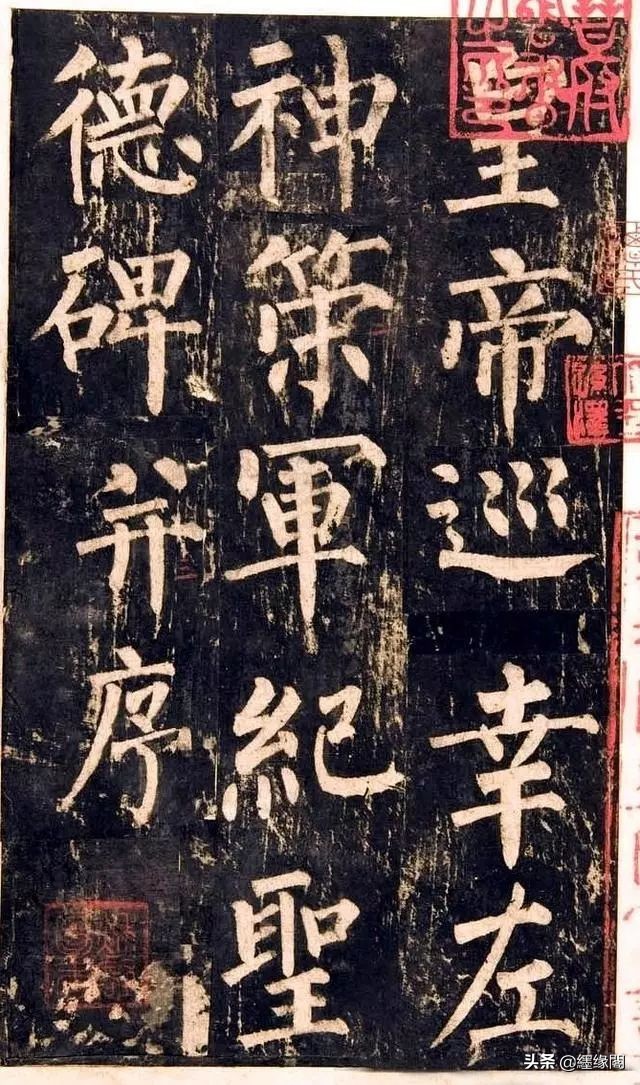 皇帝巡幸左
神策軍紀聖
德碑并序
头条 @纆缘閣